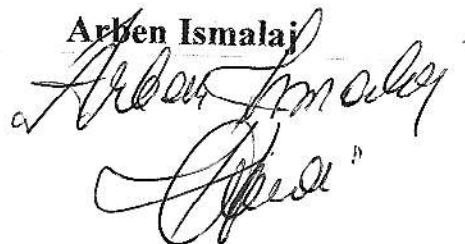 Arben Ismalaj
Arben Ismalaj